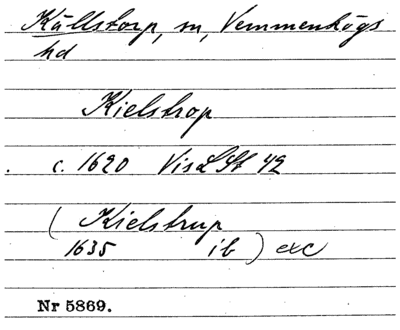 Källstorp, sn, Vemmenhögs
hd
Kielstrop
c. 1620 Vis L St 42
( Kielstrup
1635 ib ) exc
Nr 5869.